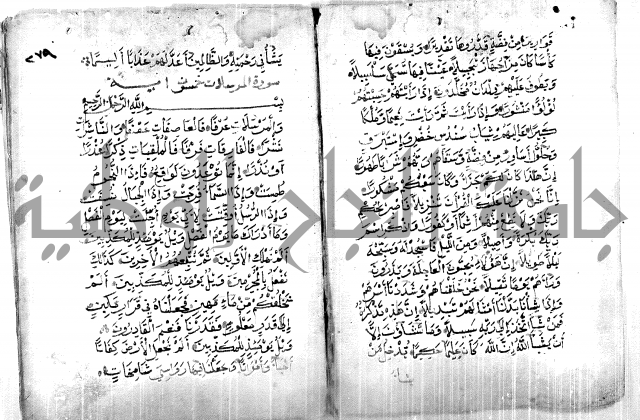 قواريرا من فضة قدروها تقديرا ويسقون فيها
كأسا كان مزاجها زنجبيلا عينا فيها تسمى سلسبيلا
ويطوف عليهم ولدان مخلدون إذا رأيتهم حسبتهم
لؤلؤا منثورا وإذا رأيت ثم رأيت نعيما وملكا
كبيرا عاليهم ثياب سندس خضر وإستبرق
وحلوا أساور من فضة وسقاهم ربهم شرابا طهورا
إن هذا كان لكم جزاء وكان سعيكم مشكورا
إنا نحن نزلنا عليك القرآن تنزيلا فاصبر لحكم
ربك ولا تطع منهم آثما أو كفورا واذكر اسم
ربك بكرة وأصيلا ومن الليل فاسجد له وسبحه
ليلا طويلا إن هؤلاء يحبون العاجلة ويذرون
وراءهم يوما ثقيلا نحن خلقناهم وشددنا أسرهم
وإذا شئنا بدلنا أمثالهم تبديلا إن هذه تذكرة
فمن شاء اتخذ إلى ربه سبيلا وما تشاءون إلا
أن يشاء الله إن الله كان عليما حكيما يدخل من
يشاء
٢٧٩
يشاء في رحمته والظالمين أعد لهم عذابا أليما
سورة المرسلات خمسون آية
بسم الله الرحمن الرحيم
والمرسلات عرفا فالعاصفات عصفا والناشرات
نشرا فالفارقات فرقا فالملقيات ذكرا عذرا
أو نذرا إنما توعدون لواقع فإذا النجوم
طمست وإذا السماء فرجت وإذا الجبال نسفت
وإذا الرسل أقتت لأي يوم أجلت ليوم الفصل
وما أدراك ما يوم الفصل ويل يومئذ للمكذبين
ألم نهلك الأولين ثم نتبعهم الآخرين كذلك
نفعل بالمجرمين ويل يومئذ للمكذبين ألم
نخلقكم من ماء مهين فجعلناه في قرار مكين
إلى قدر معلوم فقدرنا فنعم القادرون
ويل يومئذ للمكذبين ألم نجعل الأرض كفاتا
أحياء وأمواتا وجعلنا فيها رواسي شامخات
جامعة النجاح الوطنية